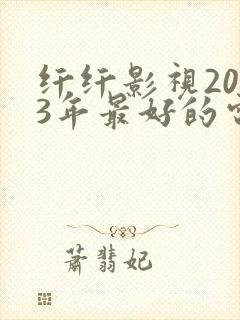 纤纤影視20
3年最好的
蕭翡妃